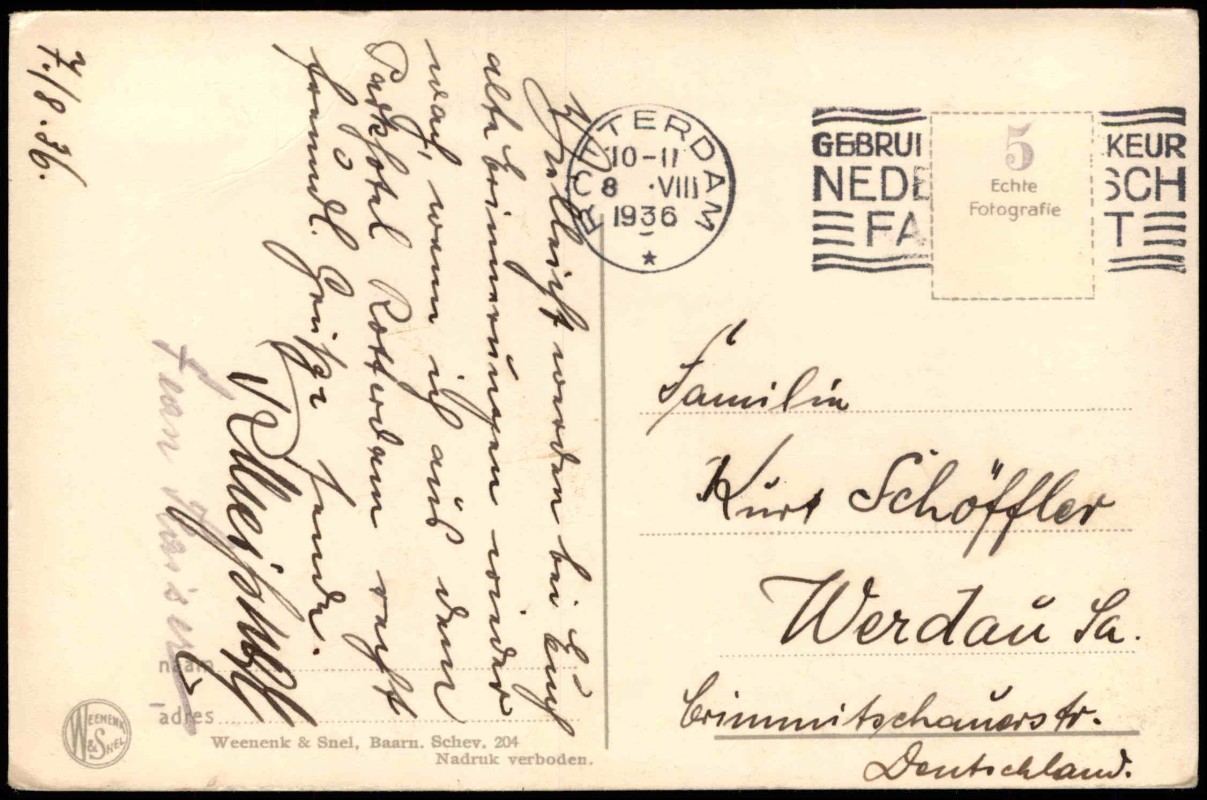 7./8.36.
Vielleicht werden bei Euch
alte Erinnerungen wieder
wach, wenn ich aus dem
Parkhotel Rotterdam recht
freundl. Grüße sende.
naam
adres
WEENENK & SNEL
Weenenk & Snel, Baarn. Schev. 204
Nadruk verboden.
ROTTERDAM
10-11
8 ·VIII
1936
GEBRUI KEUR
NEDE SCH
FA T
5
Echte
Fotografie
Familie
Kurt Schöffler
Werdau Sa.
Crimmitschauerstr.
Deutschland.